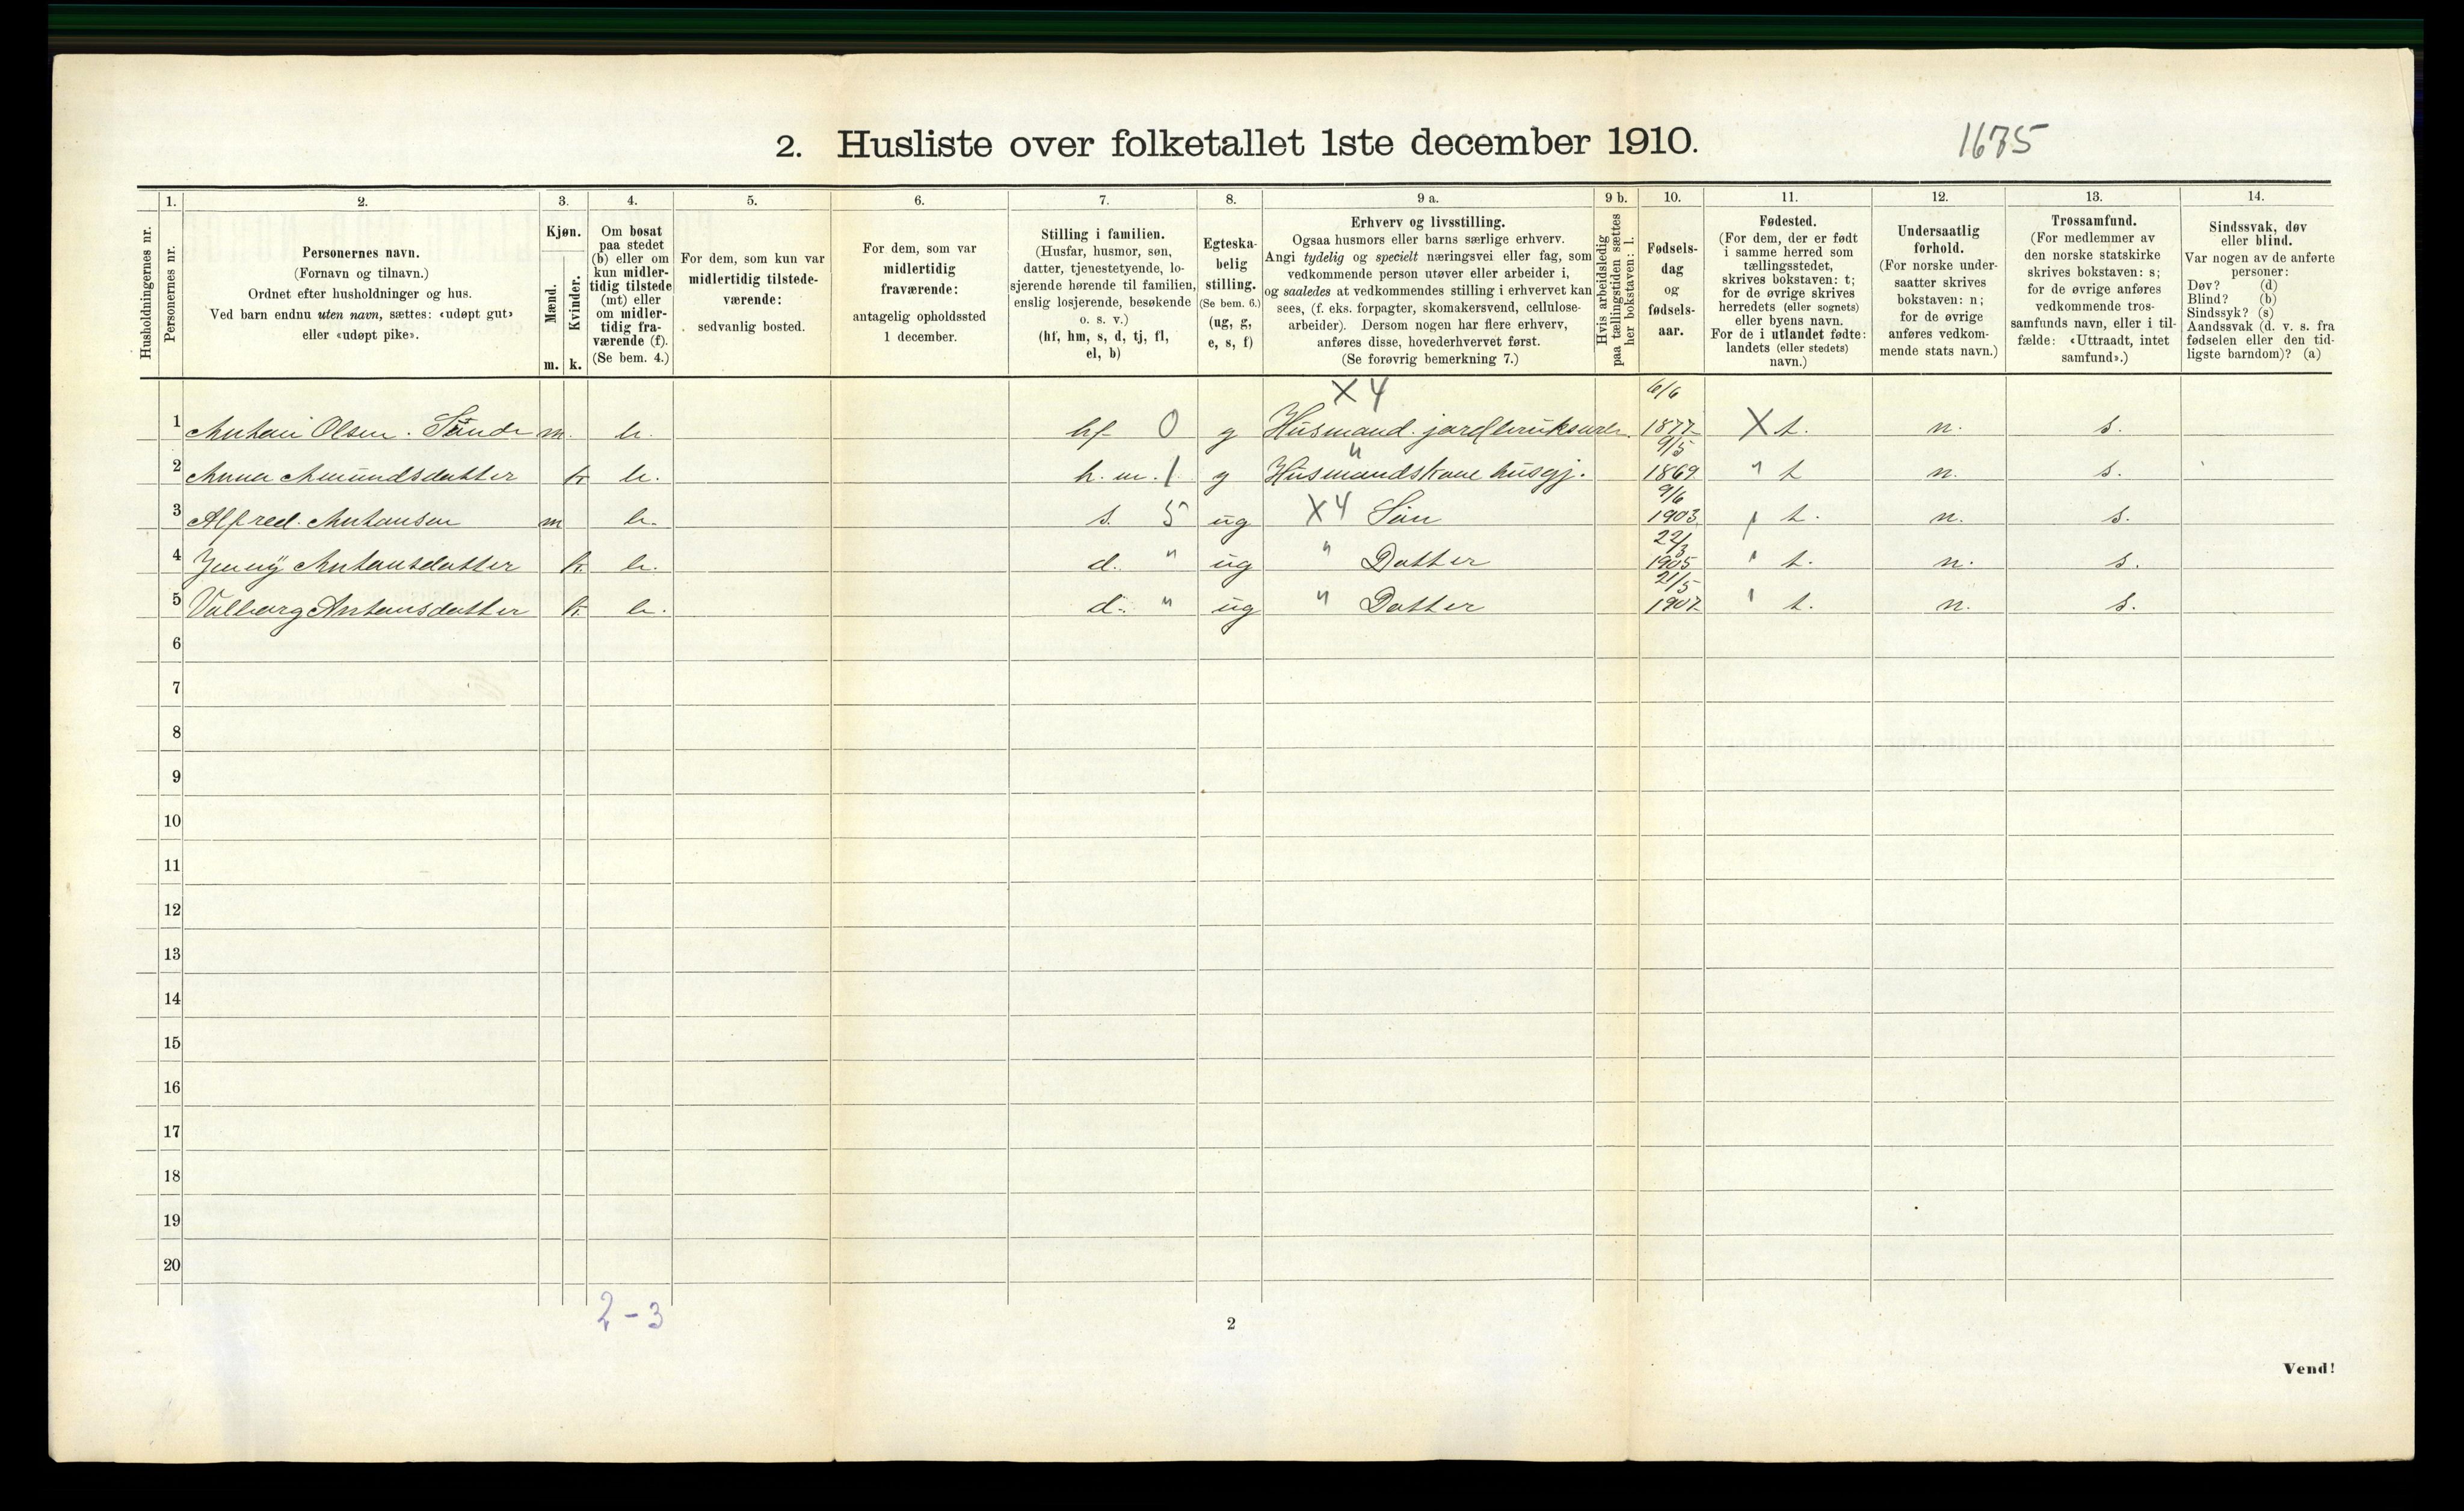 2. Husliste over folketallet 1ste december 1910.
1675
Husholdningernes nr.
1. Personernes nr.
2. Personernes navn.
(Fornavn og tilnavn.)
Ordnet efter husholdninger og hus.
Ved barn endnu uten navn, sættes: «udøpt gut»
eller «udøpt pike».
3. Kjøn.
Mænd. m.
Kvinder. k.
4. Om bosat
paa stedet
(b) eller om
kun midler-
tidig tilstede
(mt) eller
om midler-
tidig fra-
værende (f).
(Se bem. 4.)
5. For dem, som kun var
midlertidig tilstede-
værende:
sedvanlig bosted.
6. For dem, som var
midlertidig
fraværende:
antagelig opholdssted
1 december.
7. Stilling i familien.
(Husfar, husmor, søn,
datter, tjenestetyende, lo-
sjerende hørende til familien,
enslig losjerende, besøkende
o. s. v.)
(hf, hm, s, d, tj, fl,
el, b)
8. Egteska-
belig
stilling.
(Se bem. 6.)
(ug, g,
e, s, f)
9 a. Erhverv og livsstilling.
Ogsaa husmors eller barns særlige erhverv.
Angi tydelig og specielt næringsvei eller fag, som
vedkommende person utøver eller arbeider i,
og saaledes at vedkommendes stilling i erhvervet kan
sees, (f. eks. forpagter, skomakersvend, cellulose-
arbeider). Dersom nogen har flere erhverv,
anføres disse, hovederhvervet først.
(Se forøvrig bemerkning 7.)
9 b. Hvis arbeidsledig
paa tællingstiden sættes
her bokstaven: l.
10. Fødsels-
dag
og
fødsels-
aar.
11. Fødested.
(For dem, der er født
i samme herred som
tællingsstedet,
skrives bokstaven: t;
for de øvrige skrives
herredets (eller sognets)
eller byens navn.
For de i utlandet fødte:
landets (eller stedets)
navn.)
12. Undersaatlig
forhold.
(For norske under-
saatter skrives
bokstaven: n;
for de øvrige
anføres vedkom-
mende stats navn.)
13. Trossamfund.
(For medlemmer av
den norske statskirke
skrives bokstaven: s;
for de øvrige anføres
vedkommende tros-
samfunds navn, eller i til-
fælde: «Uttraadt, intet
samfund».)
14. Sindssvak, døv
eller blind.
Var nogen av de anførte
personer:
Døv? (d)
Blind? (b)
Sindssyk? (s)
Aandssvak (d. v. s. fra
fødselen eller den tid-
ligste barndom)? (a)
X 4 6/6
1 Antani Olsen. Sunde m. b. hf 0 g Husmand. jordbruksarb. 1877 X t. n. s.
" 9/5
2 Anna Amundsdatter k b. h. m. 1 g Husmandskone husgj. 1869 " t n. s.
9/6
3 Alfred. Antonsen m b. s. 5 ug X4 Sön 1903 " t. n. s.
22/3
4 Jenny Antonsdatter k. b. d. " ug " Datter 1905 " t. n. s.
21/5
5 Valborg Antonsdatter k. b. d. " ug " Datter 1907 " t. n. s.
6
7
8
9
10
11
12
13
14
15
16
17
18
19
20
2-3
2
Vend!